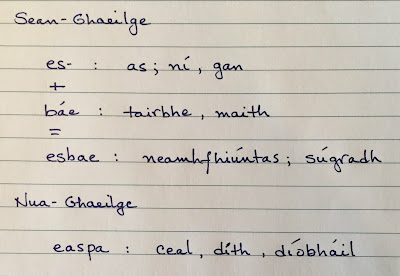 Sean-Ghaeilge
es- : as; ní, gan
+
báe : tairbhe, maith
=
esbae : neamhfhiúntas; súgradh
Nua-Ghaeilge
easpa : ceal, díth, díobháil